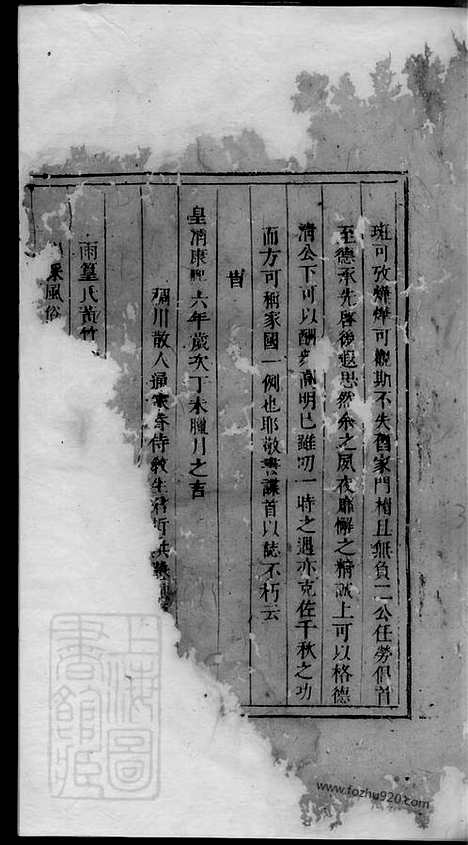 班可攷燁燁可觀斯不失舊家門楣且無負二公任勞倡首
至德承先啓後遐思然念之夙夜靡懈之精誠上可以格德
清公下可以酬衆高明已雖初一時之遇亦克佐千秋之功
而方可稱家國一例也耶敬書譜首以誌不朽云
旹
皇清康熙六年歲次丁未臘月之吉
稠川散人通家眷侍教生
雨篁氏黃竹
風俗
上海圖書館藏
www.fozhu920.com